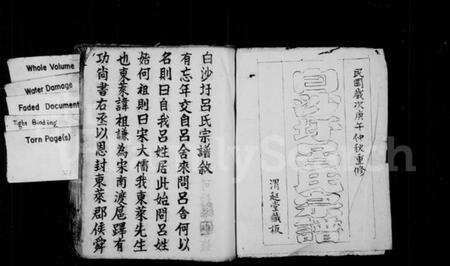 Whole Volume
Water Damage
Faded Document
Tight Binding
Torn Page(s)
民國歲次庚午仲秋重修
渭起堂藏板
白沙圩呂氏宗譜敘
有忘年交自呂舍來問呂舍何以
名則曰自我呂姓居此始問呂姓
始何祖則曰宋大儒我東萊先生
也東萊諱祖謙為宋南渡扈蹕有
功尚書右丞以恩封東萊郡侯舜